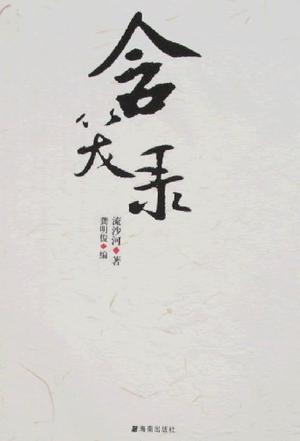 含笑录
流沙河·著
龚明俊·编
海南出版社